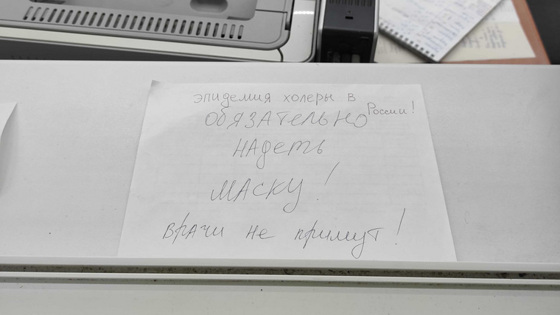 эпидемия холеры в России!
ОБЯЗАТЕЛЬНО
надеть
МАСКУ!
врачи не примут!